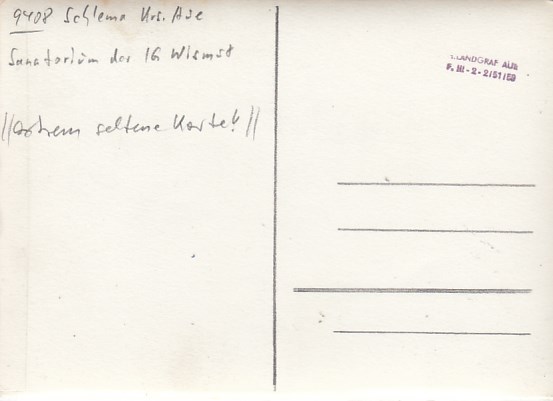 9408 Schlema Krs. Aue
Sanatorium der IG Wismut
//extrem seltene Karte!//
LANDGRAF AUE
F. III-2-2/51/53